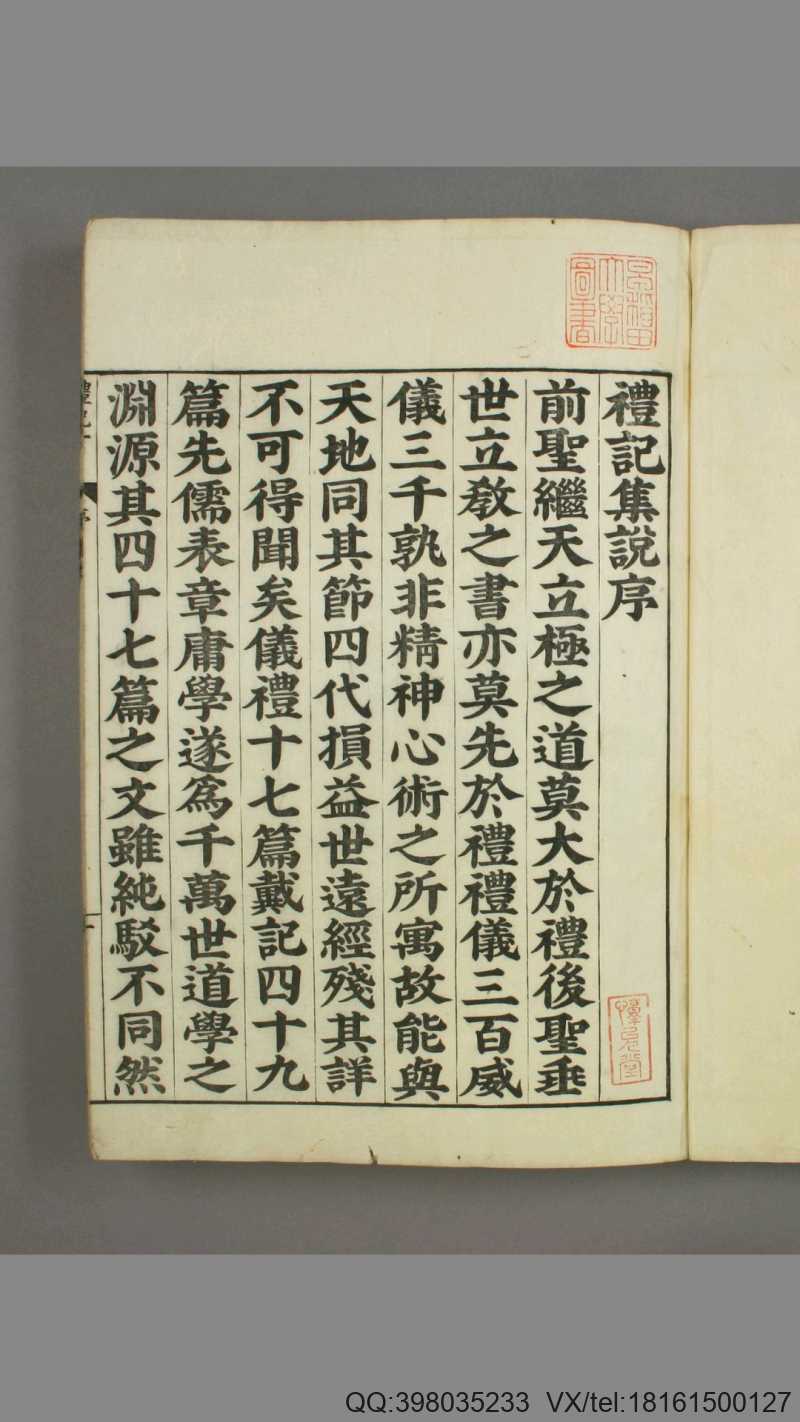 禮記集說序
前聖繼天立極之道莫大於禮後聖垂
世立敎之書亦莫先於禮禮儀三百威
儀三千孰非精神心術之所寓故能與
天地同其節四代損益世遠經殘其詳
不可得聞矣儀禮十七篇戴記四十九
篇先儒表章庸學遂爲千萬世道學之
淵源其四十七篇之文雖純駁不同然
QQ:398035233 VX/tel:18161500127